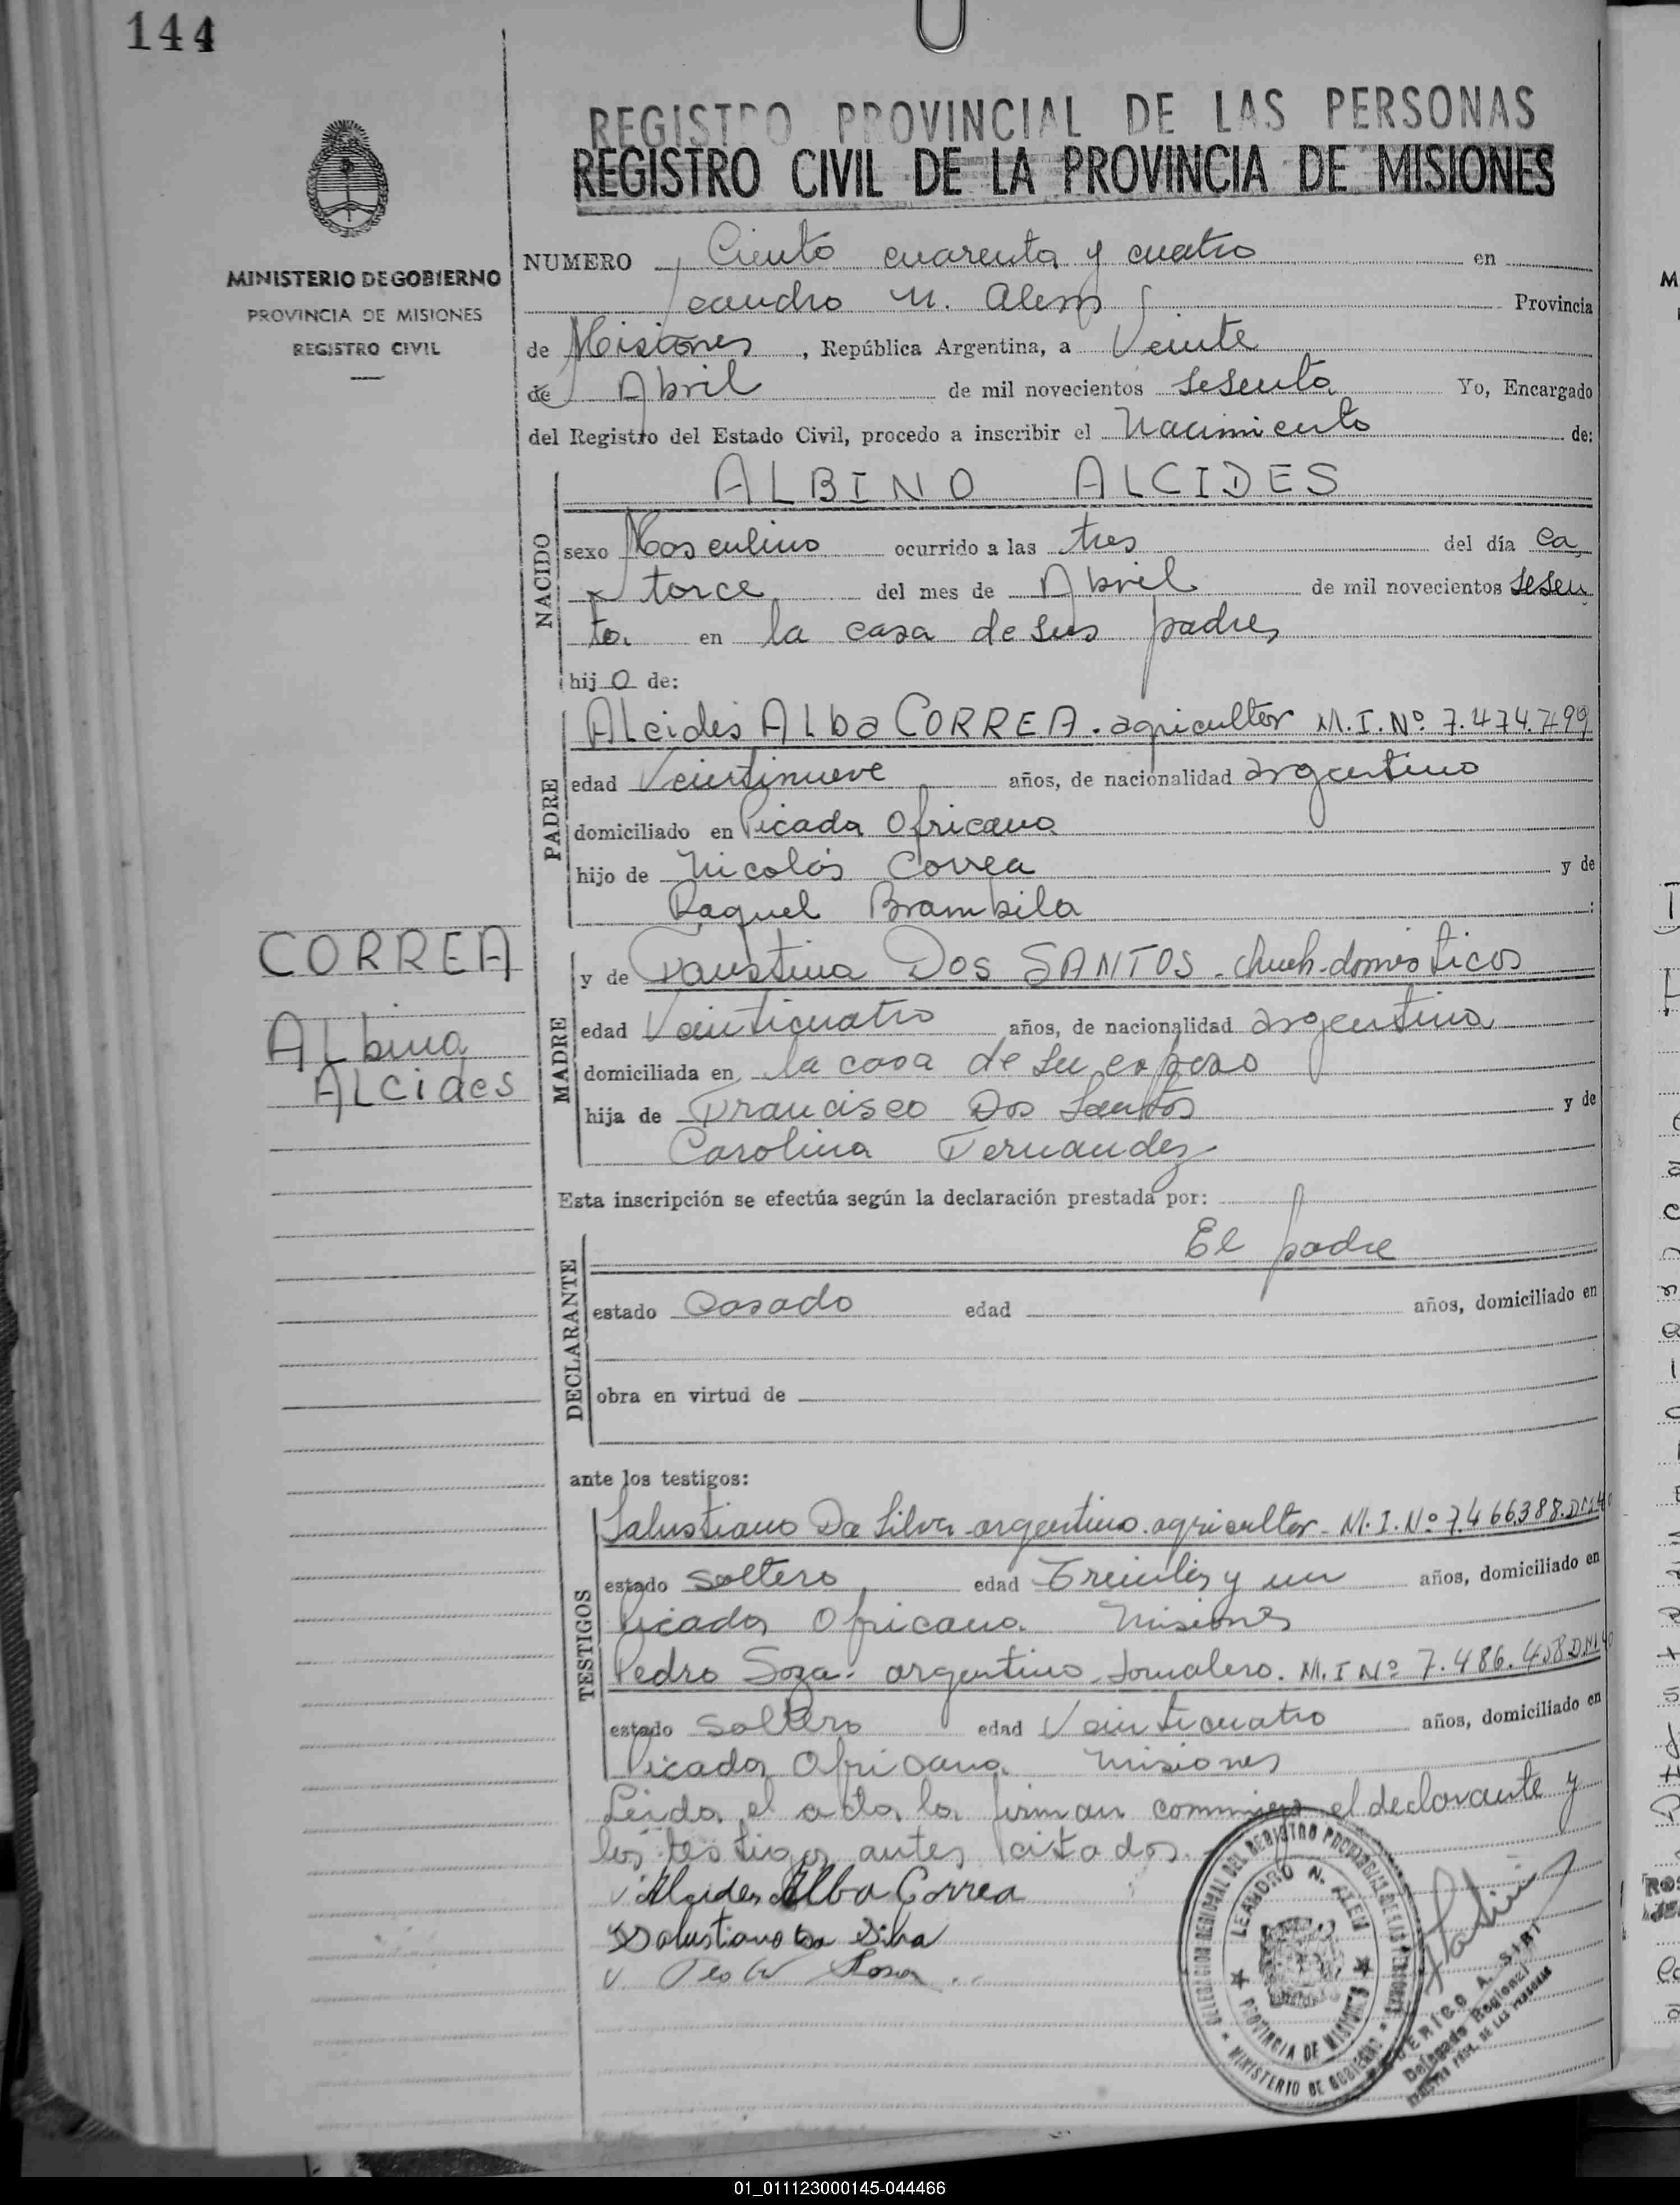 144
REGISTRO PROVINCIAL DE LAS PERSONAS
REGISTRO CIVIL DE LA PROVINCIA DE MISIONES
MINISTERIO DE GOBIERNO
PROVINCIA DE MISIONES
REGISTRO CIVIL
NUMERO Ciento cuarenta y cuatro en
Leandro N. Alem Provincia
de Misiones, República Argentina, a Veinte
de Abril de mil novecientos sesenta Yo, Encargado
del Registro del Estado Civil, procedo a inscribir el Nacimiento de:
NACIDO
ALBINO ALCIDES
sexo Masculino ocurrido a las tres del día ca
torce del mes de Abril de mil novecientos sesen
ta en la casa de sus padres
hijo de:
PADRE
Alcides Alba CORREA. agricultor M.I. Nº 7.474.799
edad Veintinueve años, de nacionalidad argentino
domiciliado en Picada Africana
hijo de Nicolás Correa y de
Raquel Brambila :
CORREA
Albino
Alcides
MADRE
y de Faustina Dos SANTOS - domésticos
edad Veinticuatro años, de nacionalidad argentina
domiciliada en la casa de su esposo
hija de Francisco Dos Santos y de
Carolina Fernandez
Esta inscripción se efectúa según la declaración prestada por:
DECLARANTE
El padre
estado Casado edad años, domiciliado en
obra en virtud de
ante los testigos:
TESTIGOS
Salustiano Da Silva - argentino - agricultor - M.I. Nº 7.466388.
estado soltero edad Treinta y un años, domiciliado en
Picada Africana Misiones
Pedro Soza - argentino - Jornalero. M.I Nº 7.486.458
estado soltero edad Veinticuatro años, domiciliado en
Picada Africana Misiones
Leída el acta la firman conmigo el declarante y
los testigos antes citados.
Alcides Alba Correa
Salustiano Da Silva
DELEGACION REGIONAL DEL REGISTRO PROVINCIAL DE LAS PERSONAS
LEANDRO N. ALEM
PROVINCIA DE MISIONES
MINISTERIO DE GOBIERNO
A. SIRI
Delegado Regional
REGISTRO PROV. DE LAS PERSONAS
01_011123000145-044466